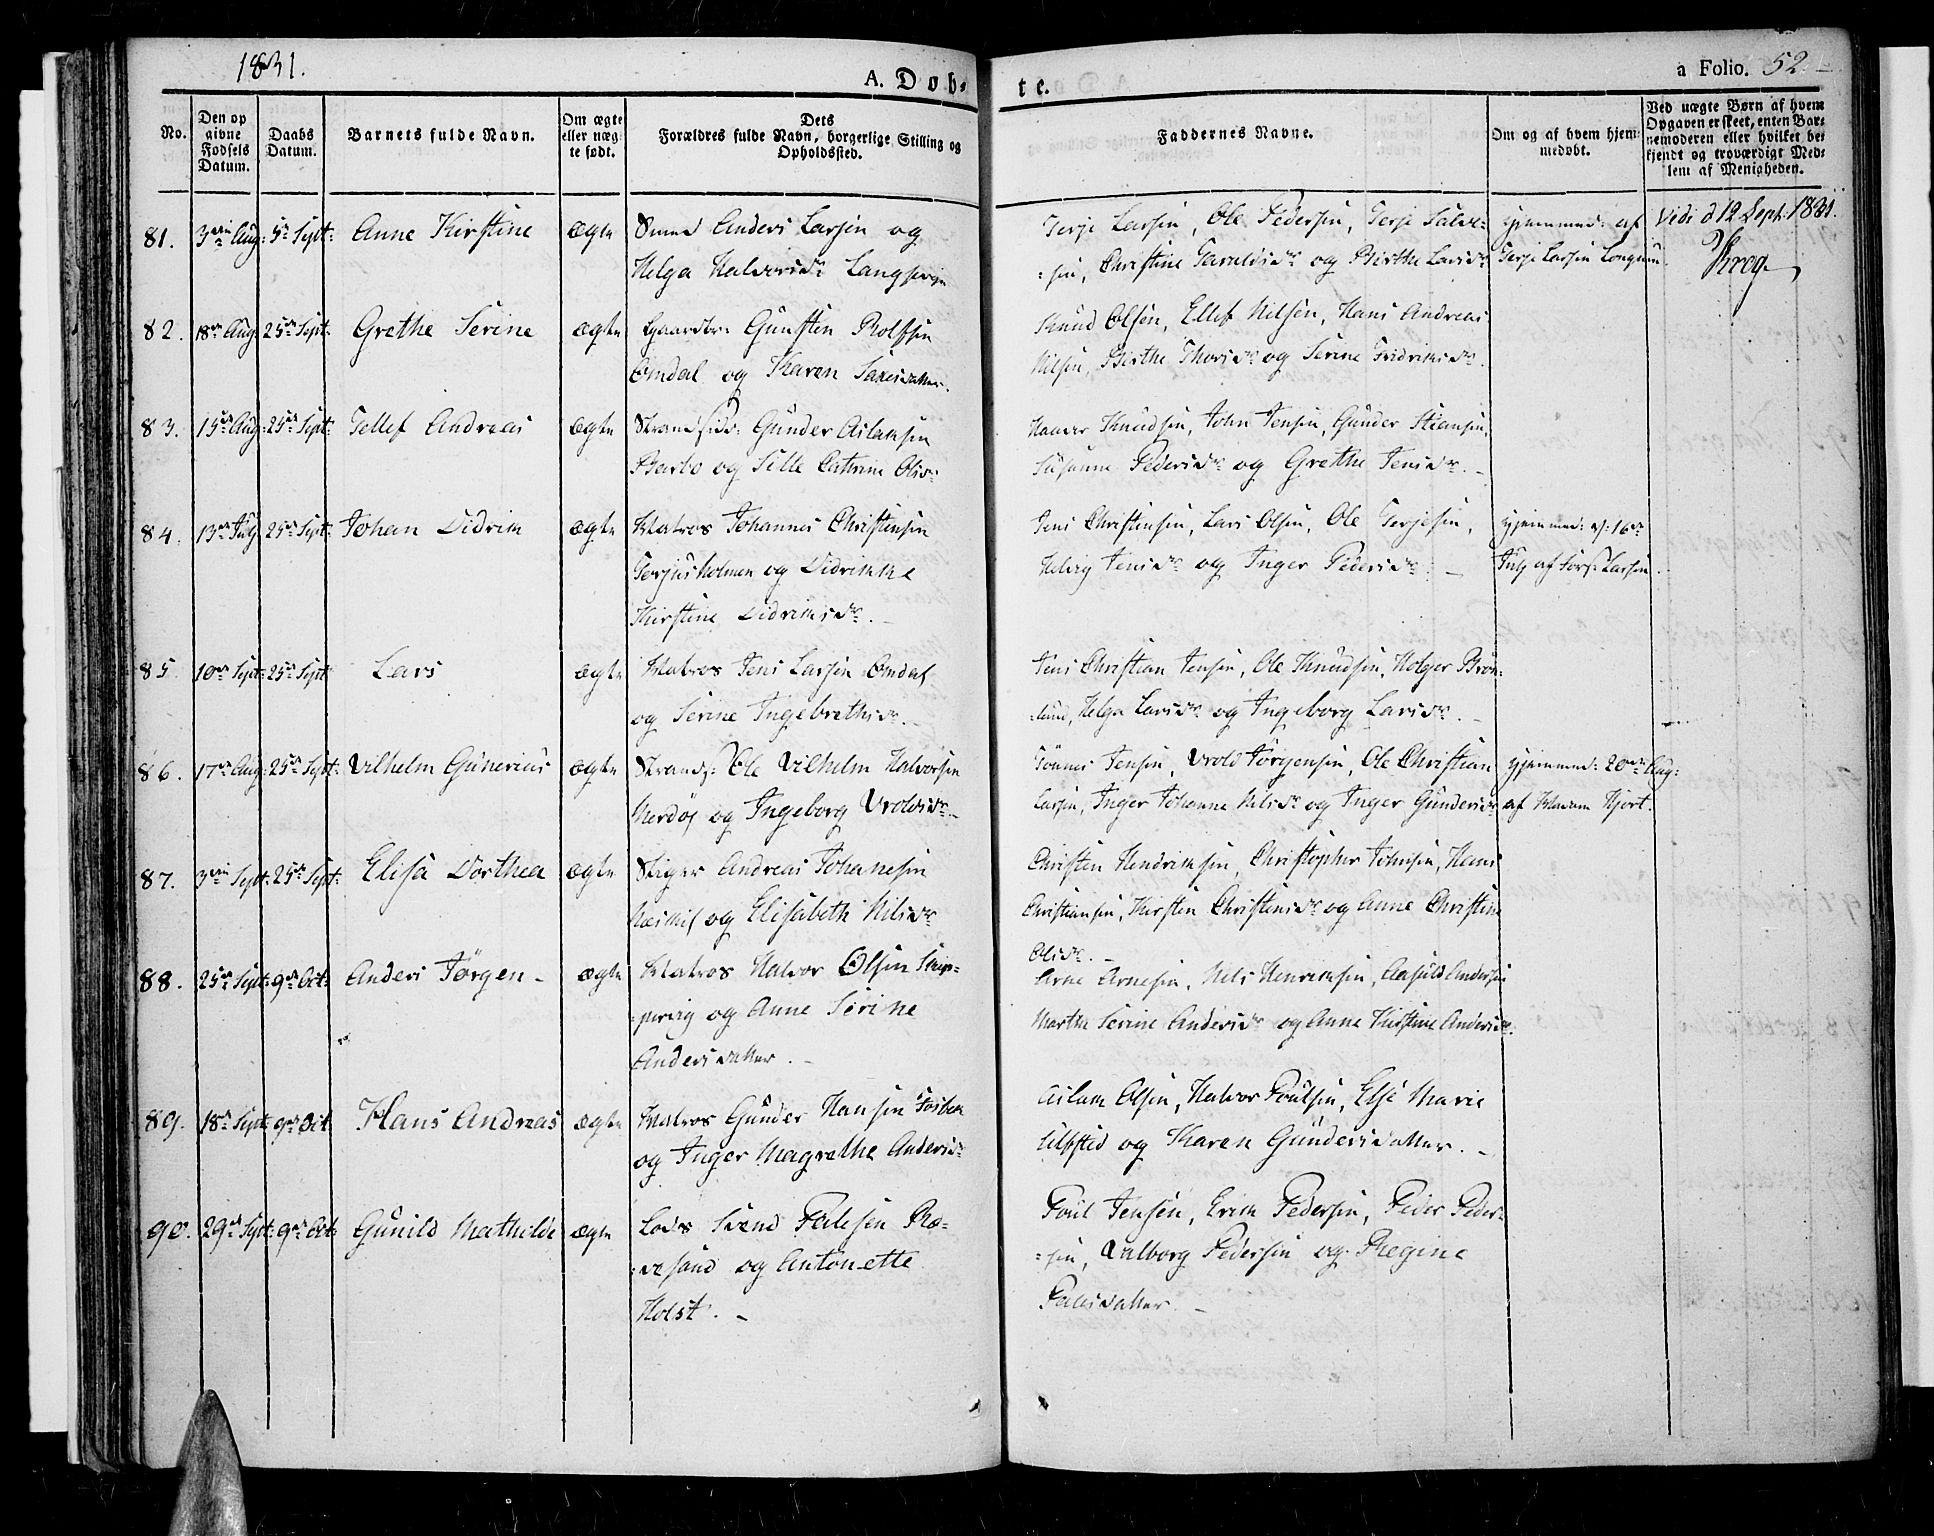 1831.
A. Døb-
te.
a Folio. 52
No.
Den op
givne
Fødsels
Datum.
Daabs
Datum.
Barnets fulde Navn.
Om ægte
eller uæg-
te født.
Dets
Forældres fulde Navn, borgerlige Stilling og
Opholdssted.
Faddernes Navne.
Om og af hvem hjem-
medøbt.
Ved uægte Børn af hvem
Opgaven er skeet, enten Bar-
nemoderen eller hvilket be-
kjendt og troværdigt Med-
lem af Menigheden.
81. 3die Aug: 5te Sept: Anne Kirstine ægte Smed Anders Larsen og
Helga Halvorsdr
Terje Larsen, Ole Pedersen, Terje Salve-
-sen, Christine Taraldsdr og Birthe Larsdr
hjemmed: af
Terje Larsen
Vidi d 12 Sept. 1831.
Krog
82. 18de Aug: 25de Sept: Grethe Serine ægte Gaardbr: Gunsten Rolfsen
Omdal og Karen
Knud Olsen, Ellef Nilsen, Hans Andreas
Nilsen, Birthe Thorsdr og Serine Fridriksdr.
83. 15de Aug: 25de Sept: Tellef Andreas ægte Strandsid: Gunder Aslaksen
Barbo og Sille Cathrine Olsd:
Knudsen, John Jensen, Gunder Steansen,
Susanne Pedersdr og Grethe Jensdr.
84. 13de July 25de Sept: Johan Didrik ægte Matros Johannes Christensen
Terjusholmen og Didrikke
Kirstine Didriksdr.
Jens Christensen, Lars Olsen, Ole Terjesen,
Helvig Jensdr og Inger Pedersdr.
hjemmed: d: 16de
July af Larsen.
85. 10de Sept: 25de Sept Lars ægte Matros Jens Larsen Omdal
og Serine Ingebrethsdr.
Jens Christian Jensen, Ole Knudsen, Holger Brøn-
-lund, Helga Larsdr og Ingeborg Larsdr.
86. 17de Aug: 25de Sept: Vilhelm Gunerius ægte Strands: Ole Vilhelm Halvorsen
Merdøe og Ingeborg Vroldsdr
Tønnes Jensen, Vrold Jørgensen, Ole Christian
Larsen, Inger Johanne Nilsdr og Inger Gundersdr
hjemmed: 20de Aug:
af Madam Hjort.
87. 3die Sept: 25de Sept: Elisa Dorthea ægte Andreas Johanesen
Næskil og Elisabeth Nilsdr
Christen Hendriksen, Christopher Johnsen, Hans
Christiansen, Kirsten Christensdr og Anne Christine
Olsdr.
88. 25de Sept: 9de Oct: Anders Jørgen ægte Matros Halvor Olsen Skip-
-pervig og Anne Serine
Andersdatter.
Arne Arnesen, Nils Henriksen, Andersen
Marthe Serine Andersdr og Anne Kirstine Andersdr.
89. 18de Sept: 9de Oct Hans Andreas ægte Matros Gunder Hansen
og Inger Magrethe Andersdr
Aslak Olsen, Halvor Poulsen, Else Marie
Ulfsted og Karen Gundersdatter.
90. 29de Sept: 9de Oct: Gunild Mathilde ægte Lods Svend Falesen Ræ-
-vesand og Antonette
Holst.
Poul Jensen, Erik Pedersen, Peder Peder-
-sen, Valborg Pedersen og Regine
Falesdatter.